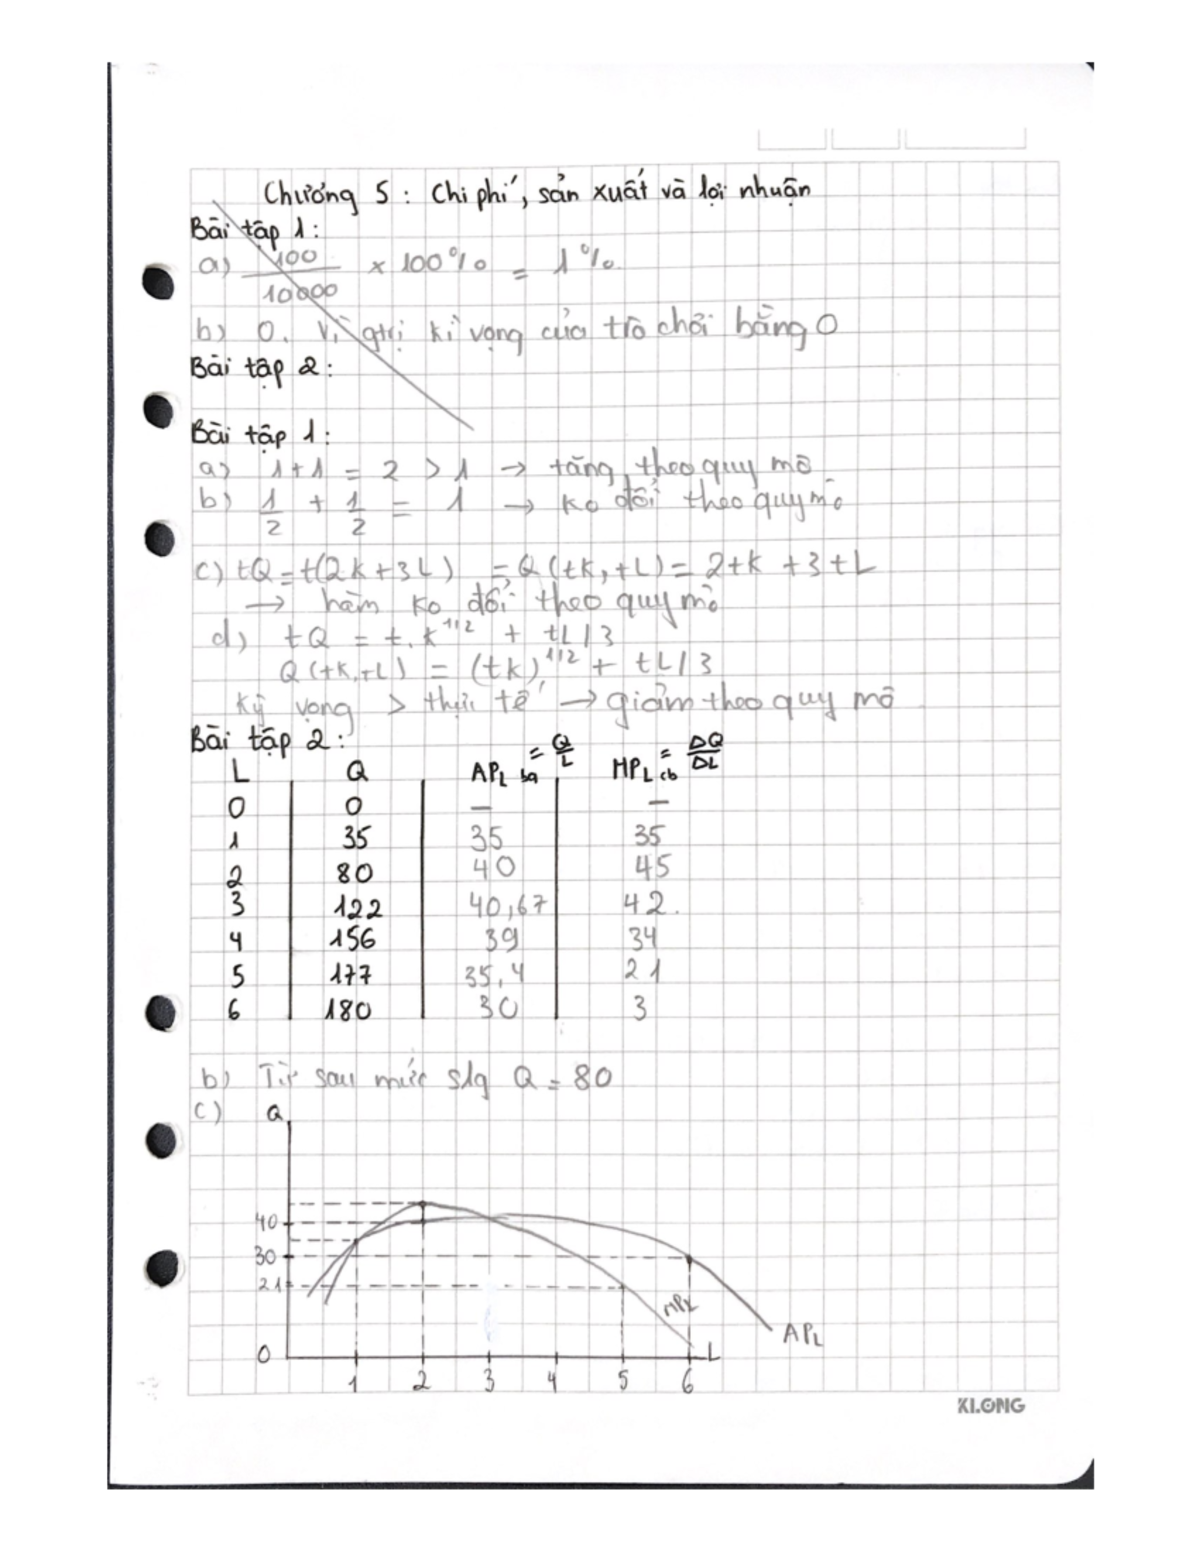 Chương 5 : Chi phí, sản xuất và lợi nhuận
Bài tập 1 :
a) 100/10000 × 100% = 1%.
b) 0. Vì gtrị kì vọng của trò chơi bằng 0
Bài tập 2 :
Bài tập 1 :
a) 1 + 1 = 2 > 1 → tăng theo quy mô
b) 1/2 + 1/2 = 1 → ko đổi theo quy mô
c) tQ = t(2K + 3L) = Q (tK, tL) = 2tK + 3tL
→ hàm ko đổi theo quy mô
d) tQ = t. K^1/2 + tL/3
Q (tK, tL) = (tK)^1/2 + tL/3
Kỳ vọng > thực tế → giảm theo quy mô
Bài tập 2 :
L Q APL bq = Q/L MPL cb = ΔQ/ΔL
0 0 — —
1 35 35 35
2 80 40 45
3 122 40,67 42.
4 156 39 34
5 177 35,4 21
6 180 30 3
b) Từ sau mức slg Q = 80
c) Q
40
30
21
MPL
APL
0 L
1 2 3 4 5 6
KLONG